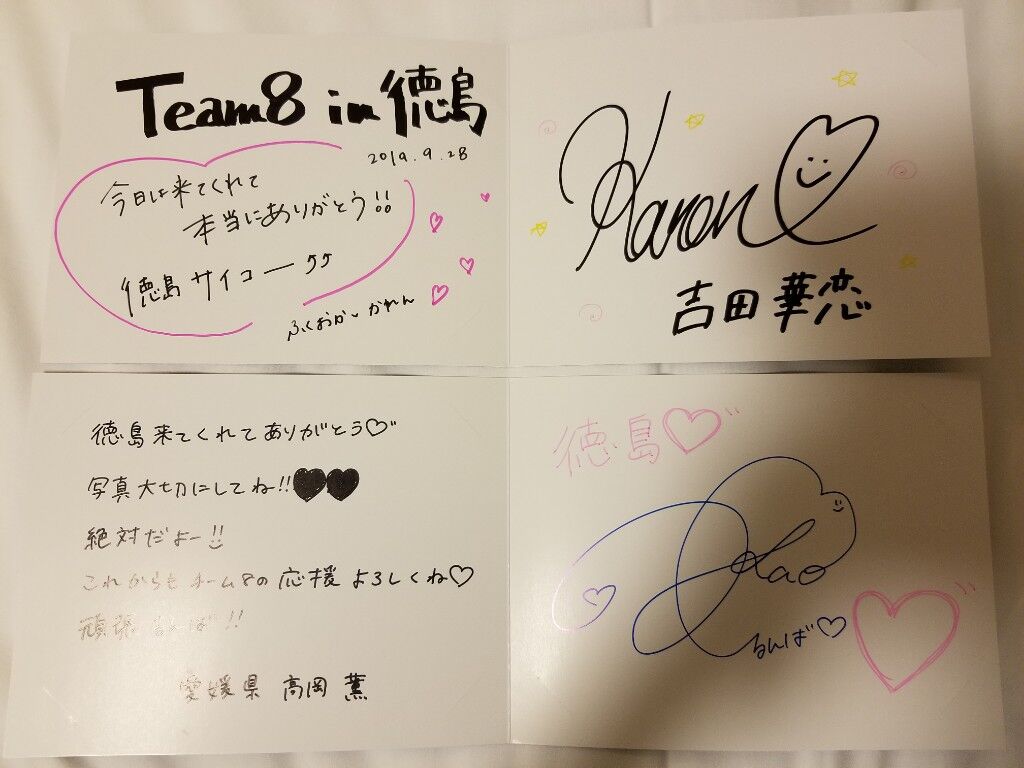 Team8 in 徳島
2019.9.28
今日は来てくれて
本当にありがとう!!
徳島サイコー
Karen
吉田 華恋
徳島来てくれてありがとう♡
写真大切にしてね!!♥♥
絶対だよー!!
これからもチーム8の応援よろしくね♡
愛媛県 高岡 薫
徳島♡
るんば♡